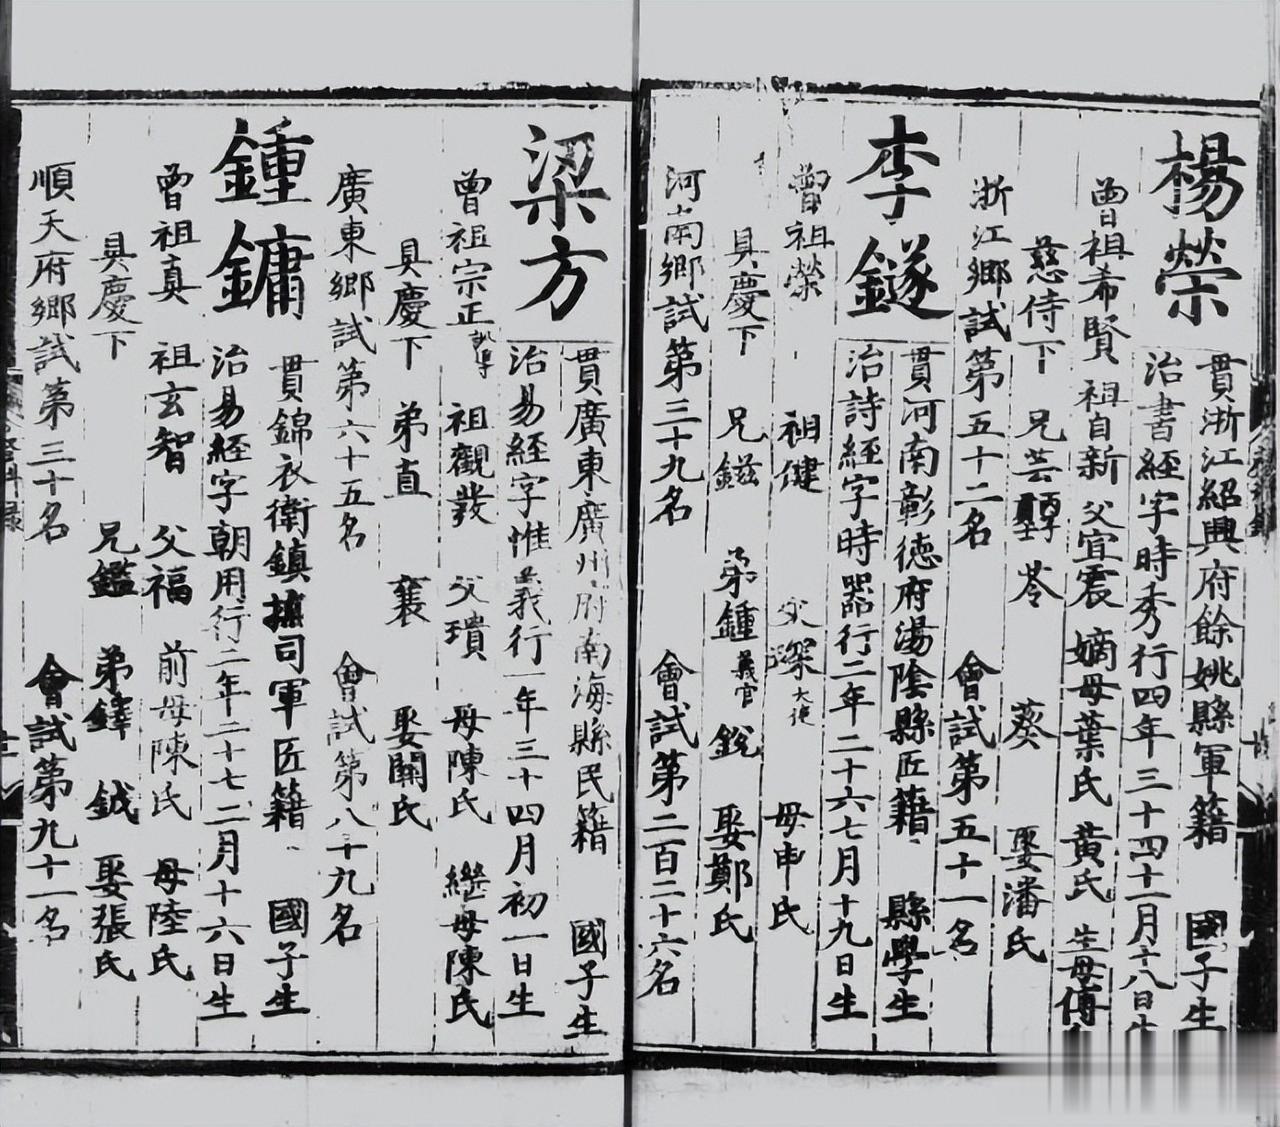 楊榮
貫浙江紹興府餘姚縣軍籍 國子生
治書經字時秀行四年三十四十一月十八日生
曾祖希賢 祖自新 父宜震 嫡母葉氏 黃氏 生母傅
慈侍下 兄芸 苓 葵 娶潘氏
浙江鄉試第五十二名 會試第五十一名
李鐩
貫河南彰德府湯陰縣匠籍 縣學生
治詩經字時器行二年二十六七月十九日生
曾祖榮 祖健 父深大使 母申氏
具慶下 兄鎡 弟鍾義官 銳 娶鄭氏
河南鄉試第三十九名 會試第二百二十六名
梁方
貫廣東廣州府南海縣民籍 國子生
治易經字惟義行一年三十四月初一日生
曾祖宗正訓導 祖觀發 父璝 母陳氏 繼母陳氏
具慶下 弟直 襄 娶關氏
廣東鄉試第六十五名 會試第八十九名
鍾鏞
貫錦衣衛鎮撫司軍匠籍 國子生
治易經字朝用行二年二十七二月十六日生
曾祖真 祖玄智 父福 前母陳氏 母陸氏
具慶下 兄鑑 弟鐸 鉞 娶張氏
順天府鄉試第三十名 會試第九十一名